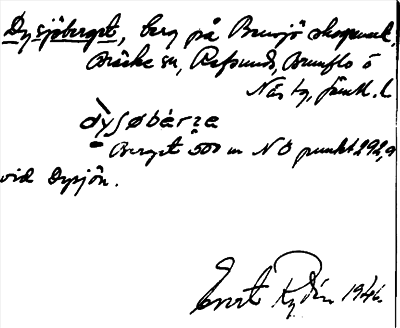 Dysjöberget, berg på Bensjö skogsmark,
Bräcke sn, Refsunds, Brunflo o
Näs tg, Jämtl. l
dysøbærʒe
Berget 500 m NO punkt 292,9
vid Dysjön.
Evert Rydén 1946.